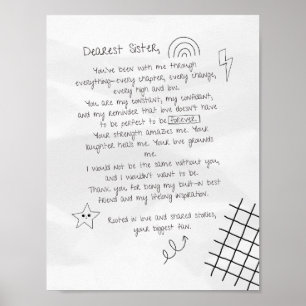 Dearest Sister,
You've been with me through
everything—every chapter, every change,
every high and low.
You are my constant, my confidant,
and my reminder that love doesn't have
to be perfect to be forever.
Your strength amazes me. Your
laughter heals me. Your love grounds
me.
I would not be the same without you,
and I wouldn't want to be.
Thank you for being my built-in best
friend and my lifelong inspiration.
Rooted in love and shared stories,
your biggest fan.